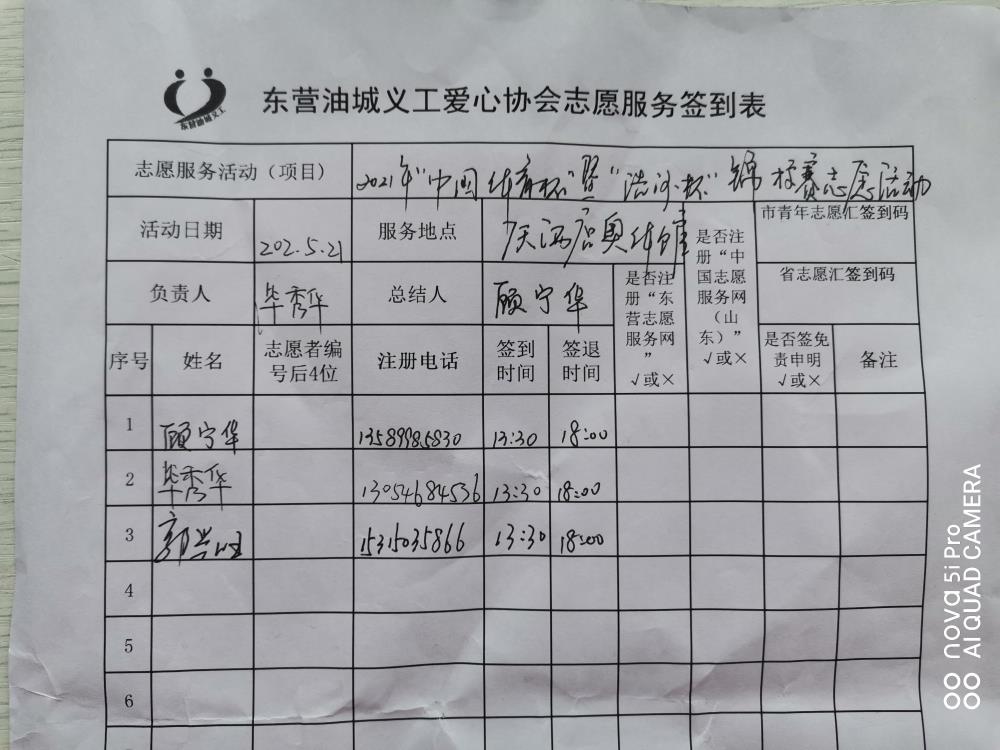 东营油城义工
东营油城义工爱心协会志愿服务签到表
志愿服务活动（项目） 2021年“中国体育杯”暨“ 杯”锦标赛志愿活动
活动日期 202.5.21 服务地点 奥体馆 是否注册“中国志愿服务网（山东）”√或× 市青年志愿汇签到码
负责人 毕秀华 总结人 顾宁华 是否注册“东营志愿服务网”√或× 省志愿汇签到码
序号 姓名 志愿者编号后4位 注册电话 签到时间 签退时间 是否签免责申明√或× 备注
1 顾宁华 13589985830 13:30 18:00
2 毕秀华 13054684536 13:30 18:00
3 郭兴旺 15315035866 13:30 18:00
4
5
6
nova 5i Pro
AI QUAD CAMERA